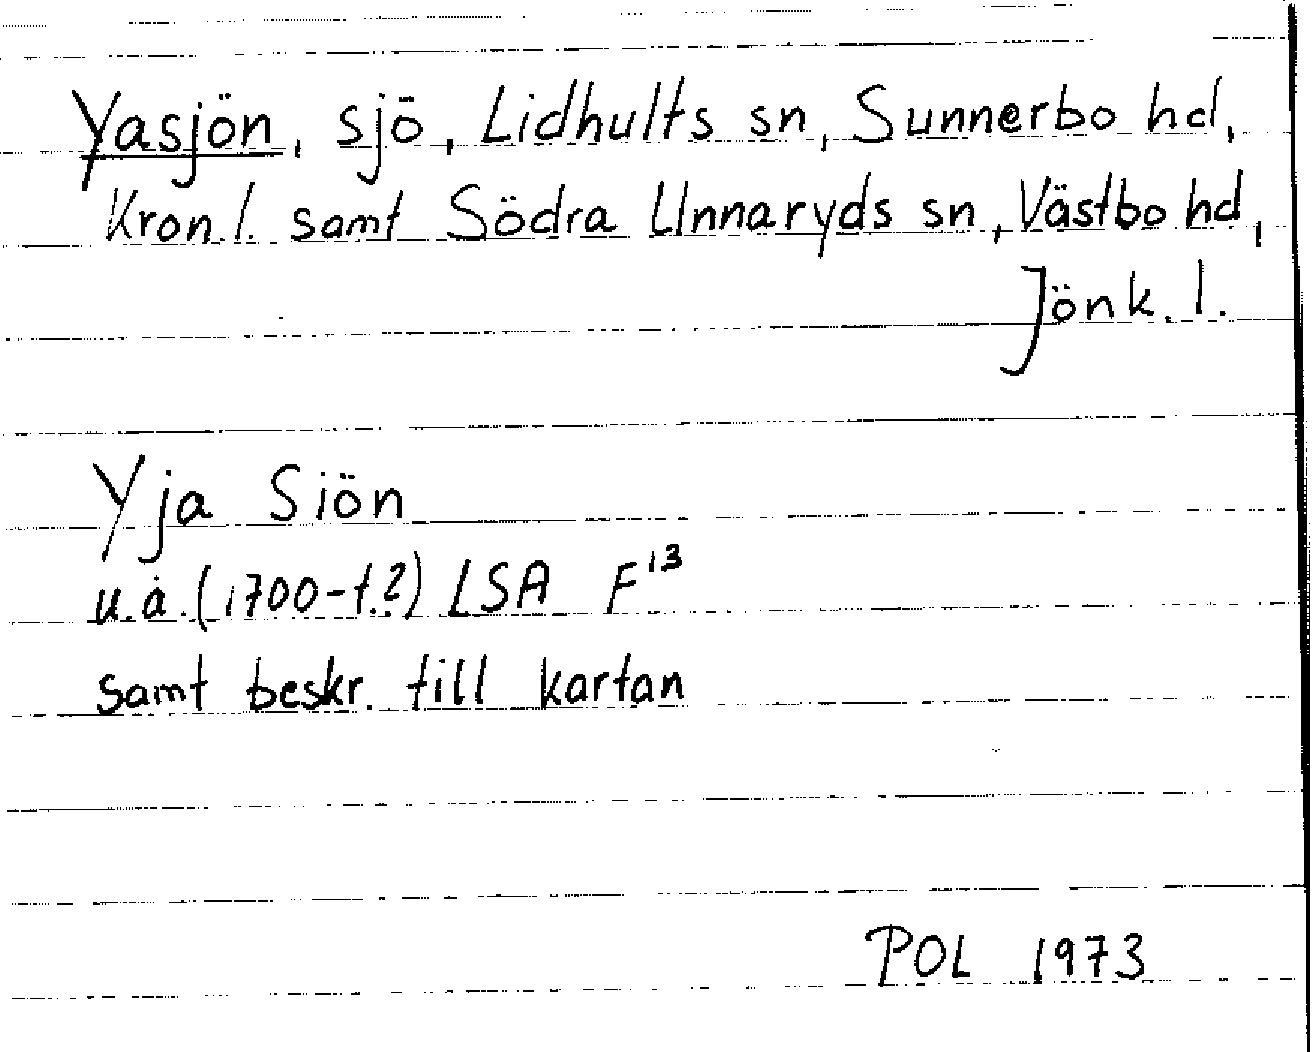 Yasjön, sjö, Lidhults sn, Sunnerbo hd,
Kron. l. samt Södra Unnaryds sn, Västbo hd,
Jönk. l.
Yja Siön
u.å. (1700-t.?) LSA F¹³
samt beskr. till kartan
POL 1973